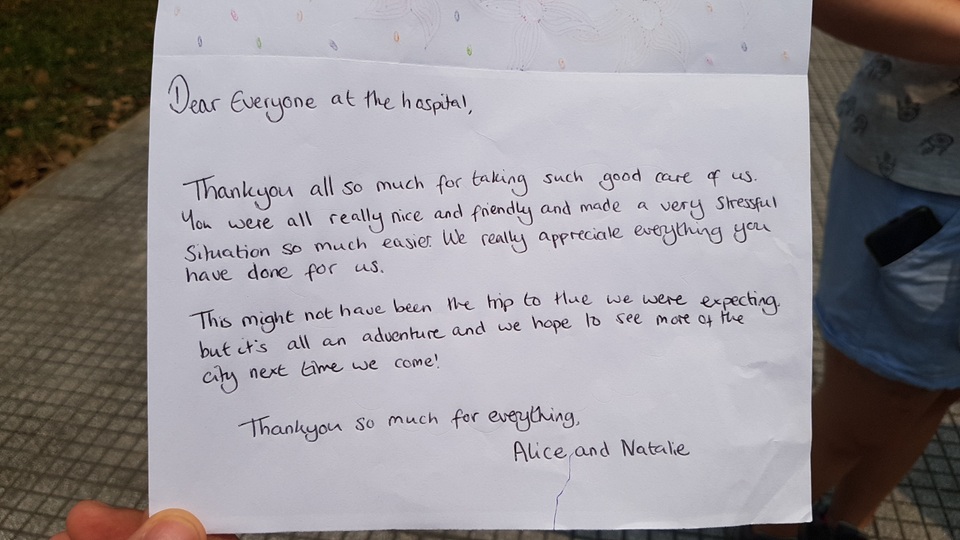 Dear Everyone at the hospital,
Thankyou all so much for taking such good care of us.
You were all really nice and friendly and made a very stressful
situation so much easier. We really appreciate everything you
have done for us.
This might not have been the trip to Hue we were expecting.
but it's all an adventure and we hope to see more of the
city next time we come!
Thankyou so much for everything,
Alice and Natalie